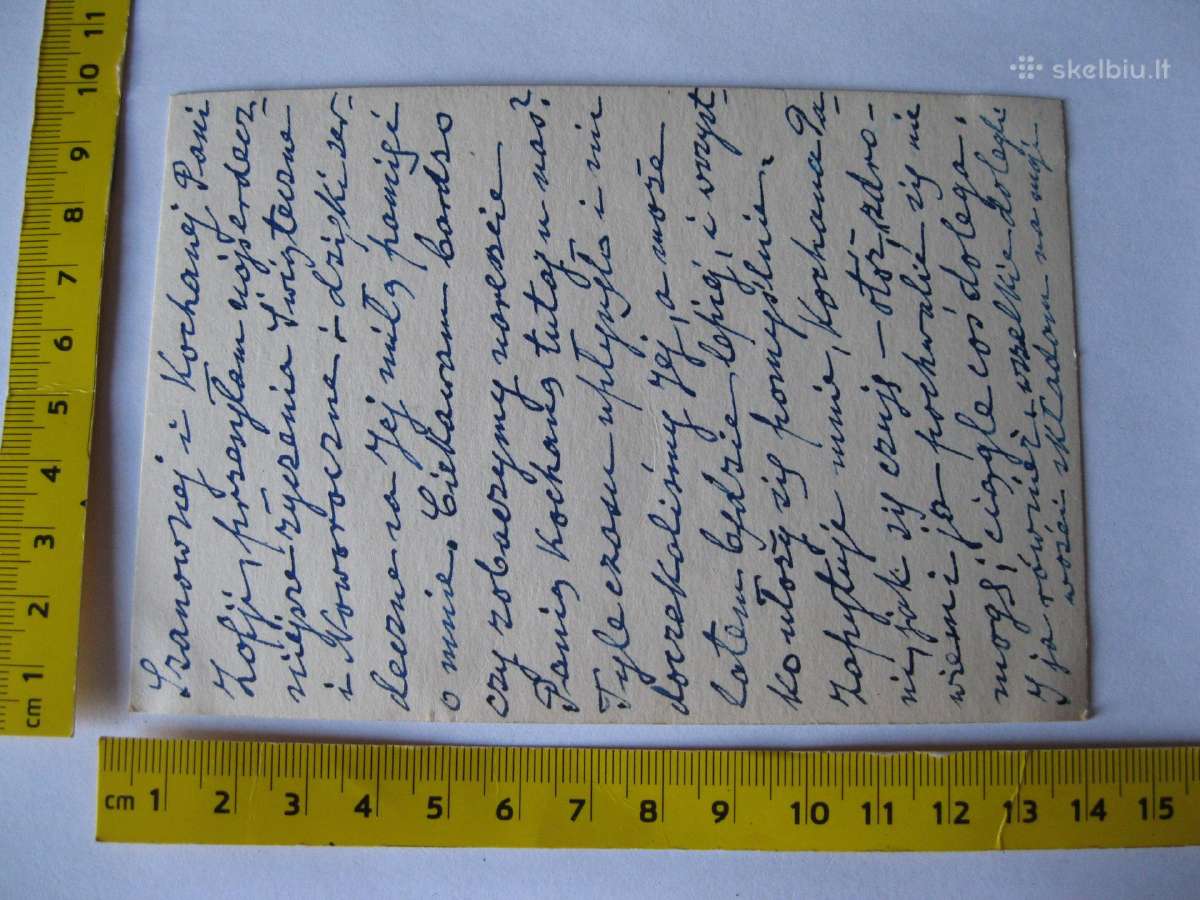 Szanownej i Kochanej Pani
Zofji, przesyłam najserdecz-
niejsze życzenia Świąteczne
i Noworoczne i dzięki ser-
deczne za Jej miłą pamięć
o mnie. Ciekawam bardzo
czy zobaczymy nareszcie
Panią Kochaną tutaj u nas?
Tyle czasu upłynęło i nie
doczekaliśmy Jej, a może
latem będzie lepiej, i wszyst-
ko ułoży się pomyślnie.
Zapytuje mnie, Kochana Pa-
ni, jak się czuję – otóż, zdro-
wiem i ja pochwalić się nie
mogę, ciągle coś dolega,
I ja również wszelkie dolegli-
wości składam na nogi.
cm 1 2 3 4 5 6 7 8 9 10 11
cm 1 2 3 4 5 6 7 8 9 10 11 12 13 14 15
skelbiu.lt